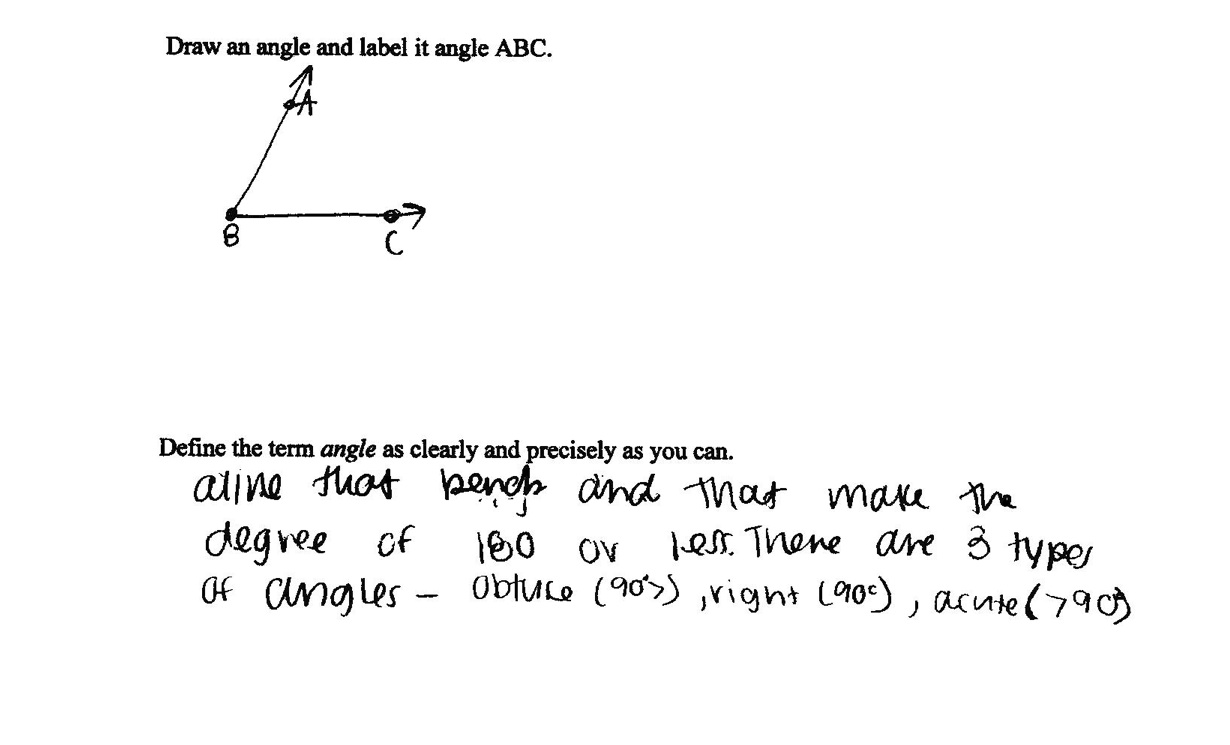 Draw an angle and label it angle ABC.
A
B
C
Define the term angle as clearly and precisely as you can.
a line that bends and that make the
degree of 180 or less. There are 3 types
of angles - obtuse (90°>), right (90°), acute (>90°)